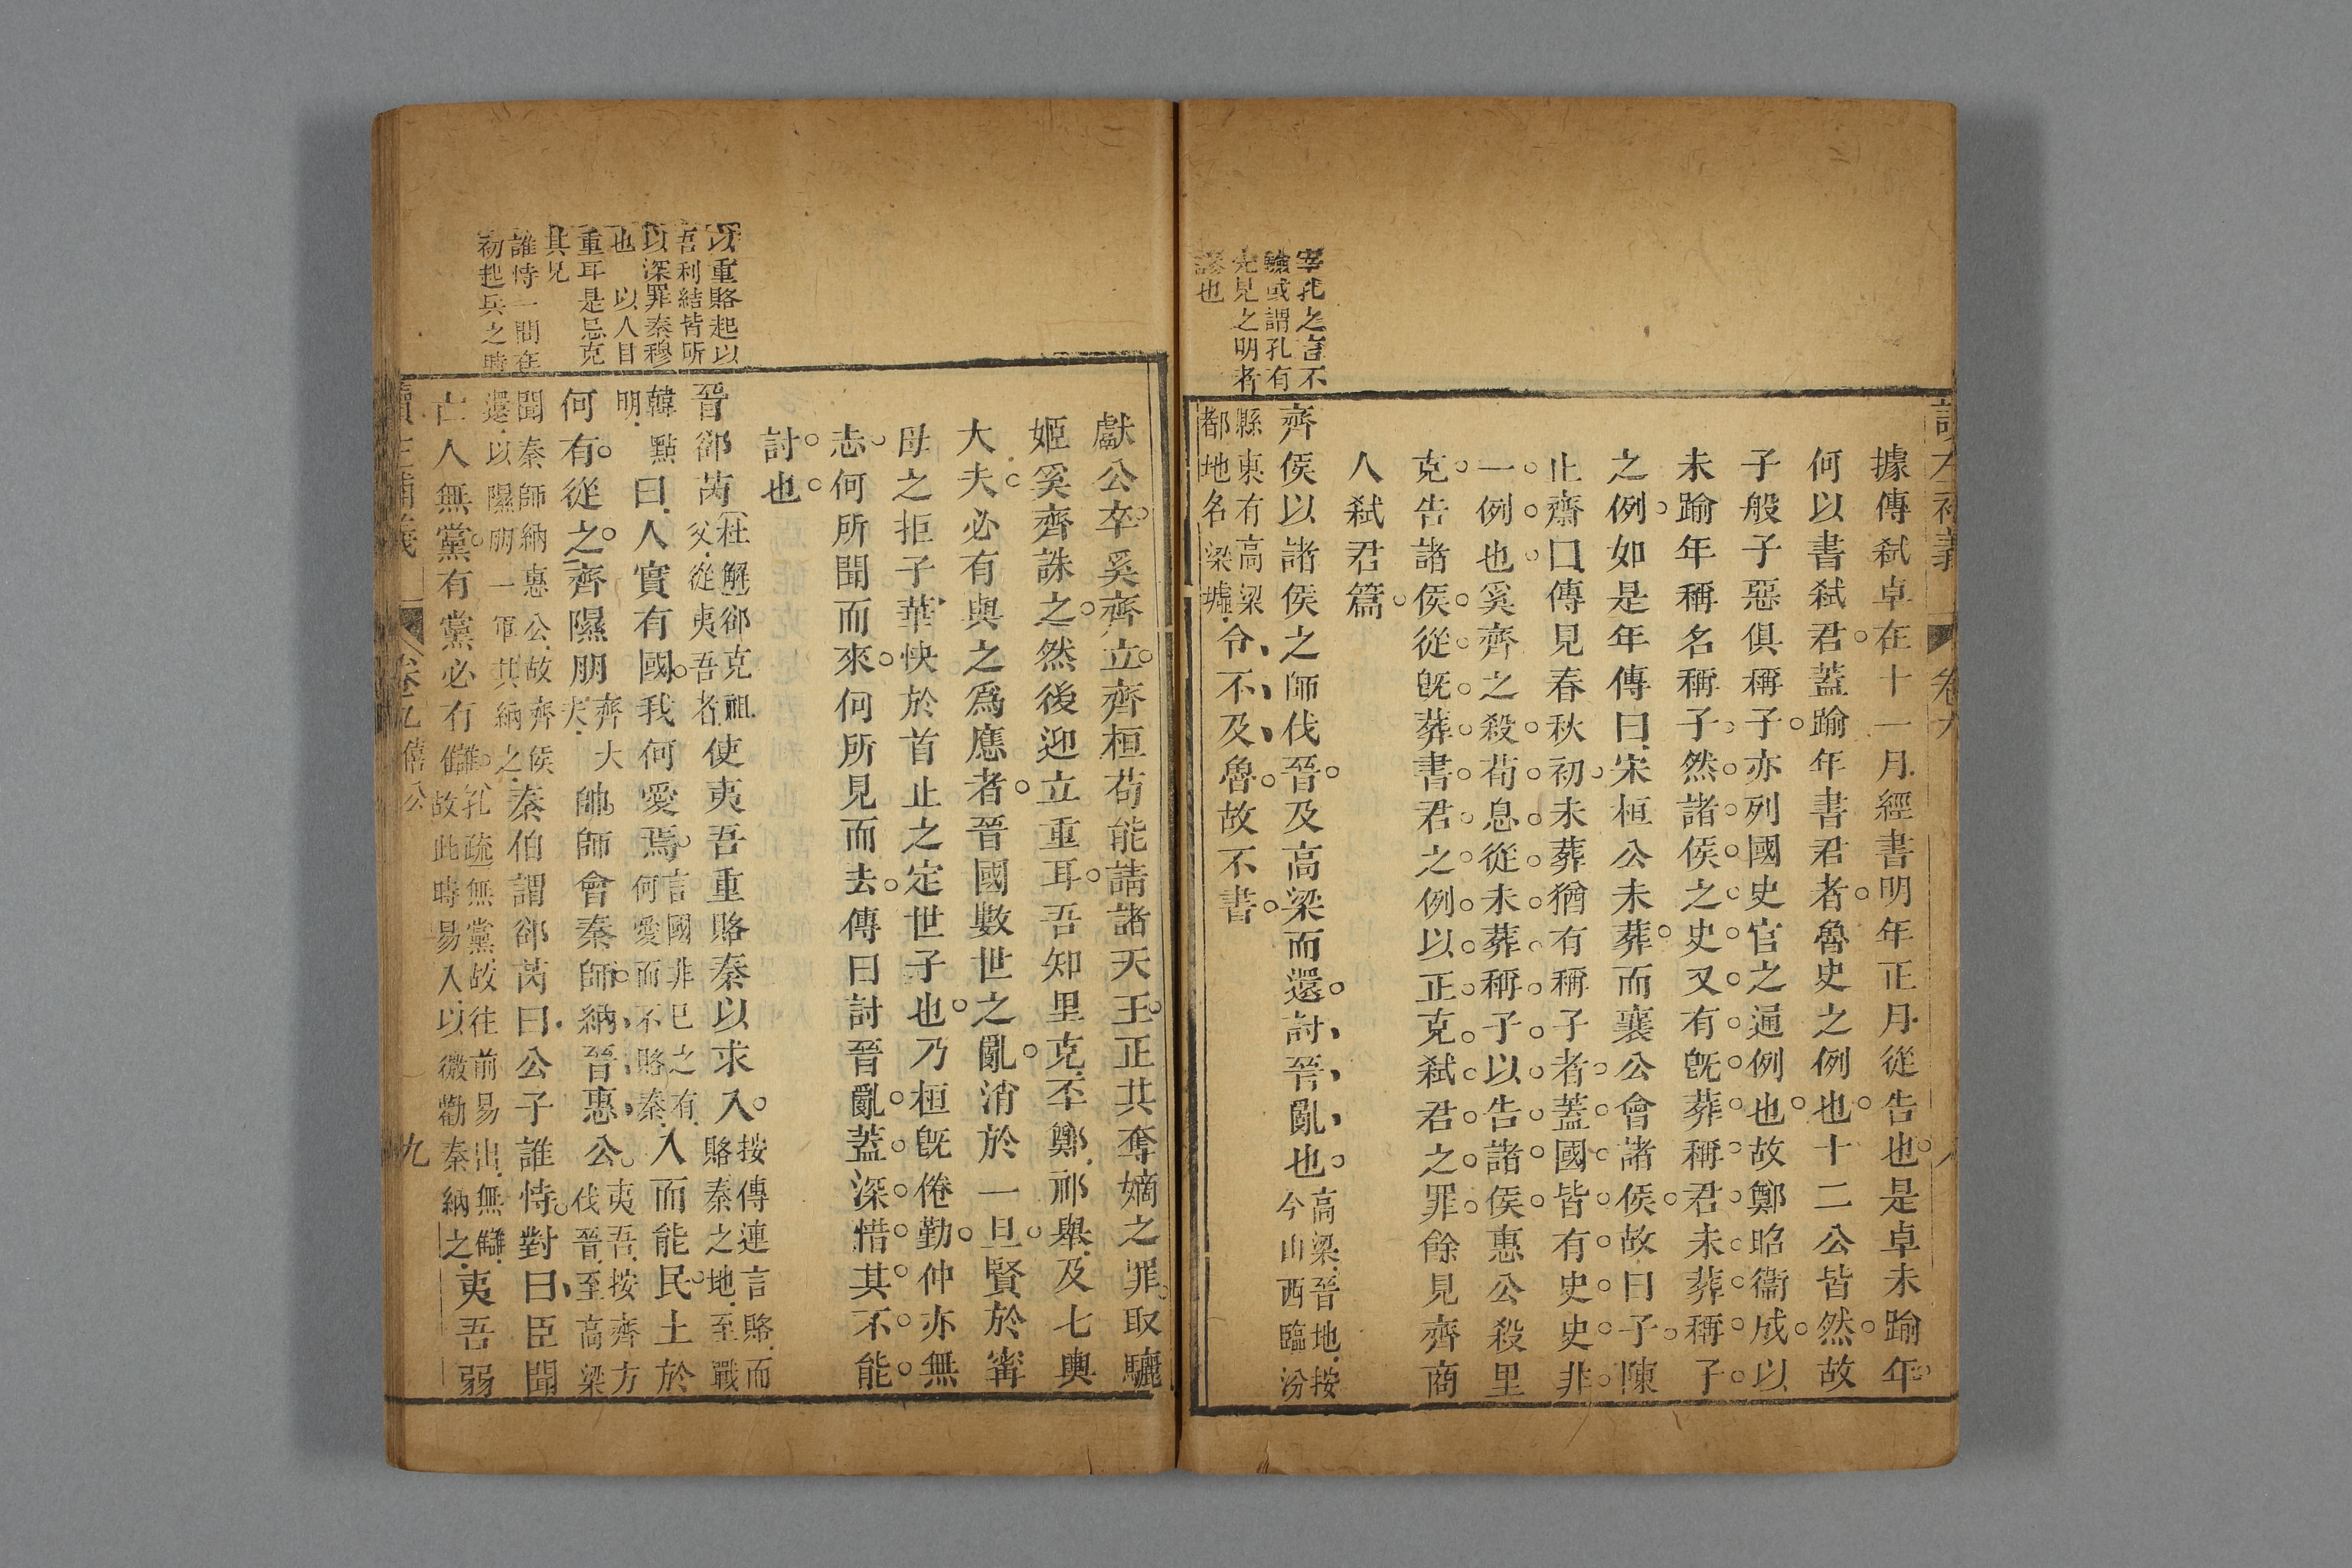 宰孔之言不
驗或謂孔有
先見之明者
謬也
據傳弒卓在十一月經書明年正月從告也是卓未踰年
何以書弒君蓋踰年書君者魯史之例也十二公皆然故
子般子惡俱稱子亦列國史官之通例也故鄭昭衞成以
未踰年稱名稱子然諸侯之史又有旣葬稱君未葬稱子
之例如是年傳曰宋桓公未葬而襄公會諸侯故曰子陳
止齋曰傳見春秋初未葬猶有稱子者蓋國皆有史史非
一例也奚齊之殺荀息從未葬稱子以告諸侯惠公殺里
克告諸侯從旣葬書君之例以正克弒君之罪餘見齊商
人弒君篇
齊侯以諸侯之師伐晉及高梁而還討晉亂也高梁晉地按今山西臨汾
縣東有高梁都地名梁墟令不及魯故不書
以重賂起以
吾利結皆所
以深罪秦穆
也 以人目
重耳是忌克
其兄
誰恃一問在
初起兵之時
獻公卒奚齊立齊桓苟能請諸天王正其奪嫡之罪取驪
姬奚齊誅之然後迎立重耳吾知里克丕鄭祁舉及七輿
大夫必有與之爲應者晉國數世之亂消於一旦賢於甯
母之拒子華快於首止之定世子也乃桓旣倦勤仲亦無
志何所聞而來何所見而去傳曰討晉亂蓋深惜其不能
討也
晉郤芮杜解郤克祖父從夷吾者使夷吾重賂秦以求入按傳連言賂而賂秦之地至戰
韓點明曰人實有國我何愛焉言國非已之有何愛而不賂秦入而能民土於
何有從之齊隰朋齊大夫帥師會秦師納晉惠公夷吾按齊方伐晉至高梁
聞秦師納惠公故齊侯還以隰朋一軍其納之秦伯謂郤芮曰公子誰恃對曰臣聞
亡人無黨有黨必有讎孔疏無黨故往前易出無讎故此時易入以微勸秦納之夷吾弱
卷九 僖公 九